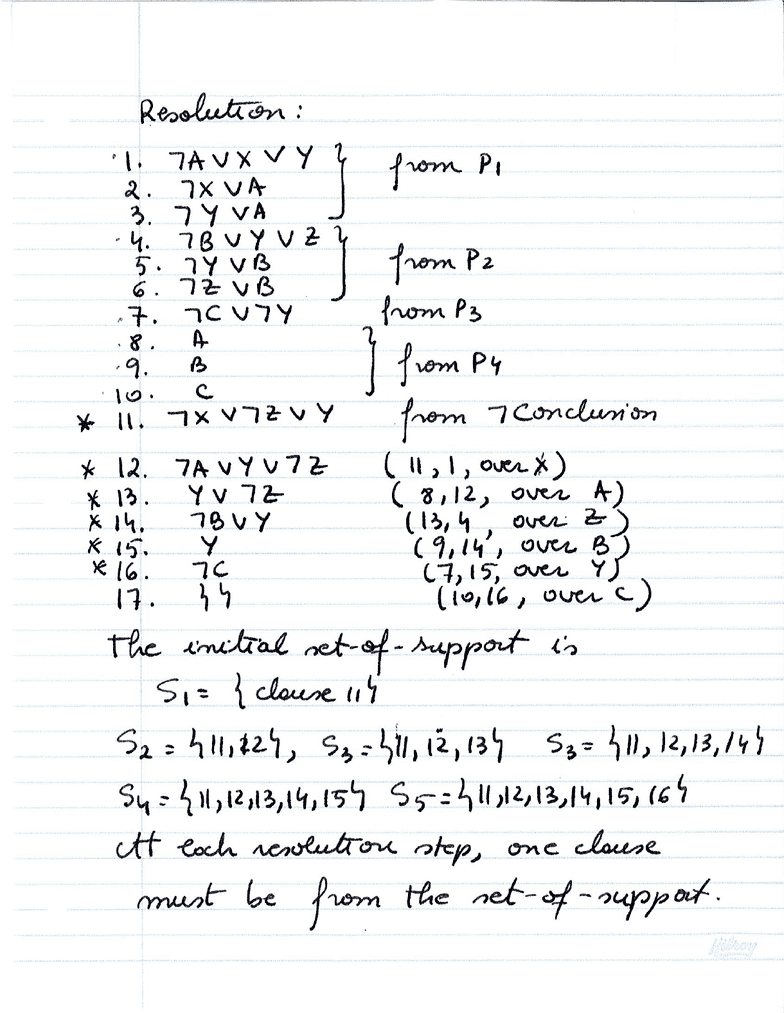 Resolution:
1. ¬A ∨ X ∨ Y } from P1
2. ¬X ∨ A
3. ¬Y ∨ A
4. ¬B ∨ Y ∨ Z } from P2
5. ¬Y ∨ B
6. ¬Z ∨ B
7. ¬C ∨ ¬Y from P3
8. A } from P4
9. B
10. C
* 11. ¬X ∨ ¬Z ∨ Y from ¬Conclusion
* 12. ¬A ∨ Y ∨ ¬Z (11, 1, over X)
* 13. Y ∨ ¬Z (8, 12, over A)
* 14. ¬B ∨ Y (13, 4, over Z)
* 15. Y (9, 14, over B)
* 16. ¬C (7, 15, over Y)
17. { } (10, 16, over C)
The initial set-of-support is
S1 = { clause 11}
S2 = {11, 12}, S3 = {11, 12, 13} S3 = {11, 12, 13, 14}
S4 = {11, 12, 13, 14, 15} S5 = {11, 12, 13, 14, 15, 16}
At each resolution step, one clause
must be from the set-of-support.
Hilroy